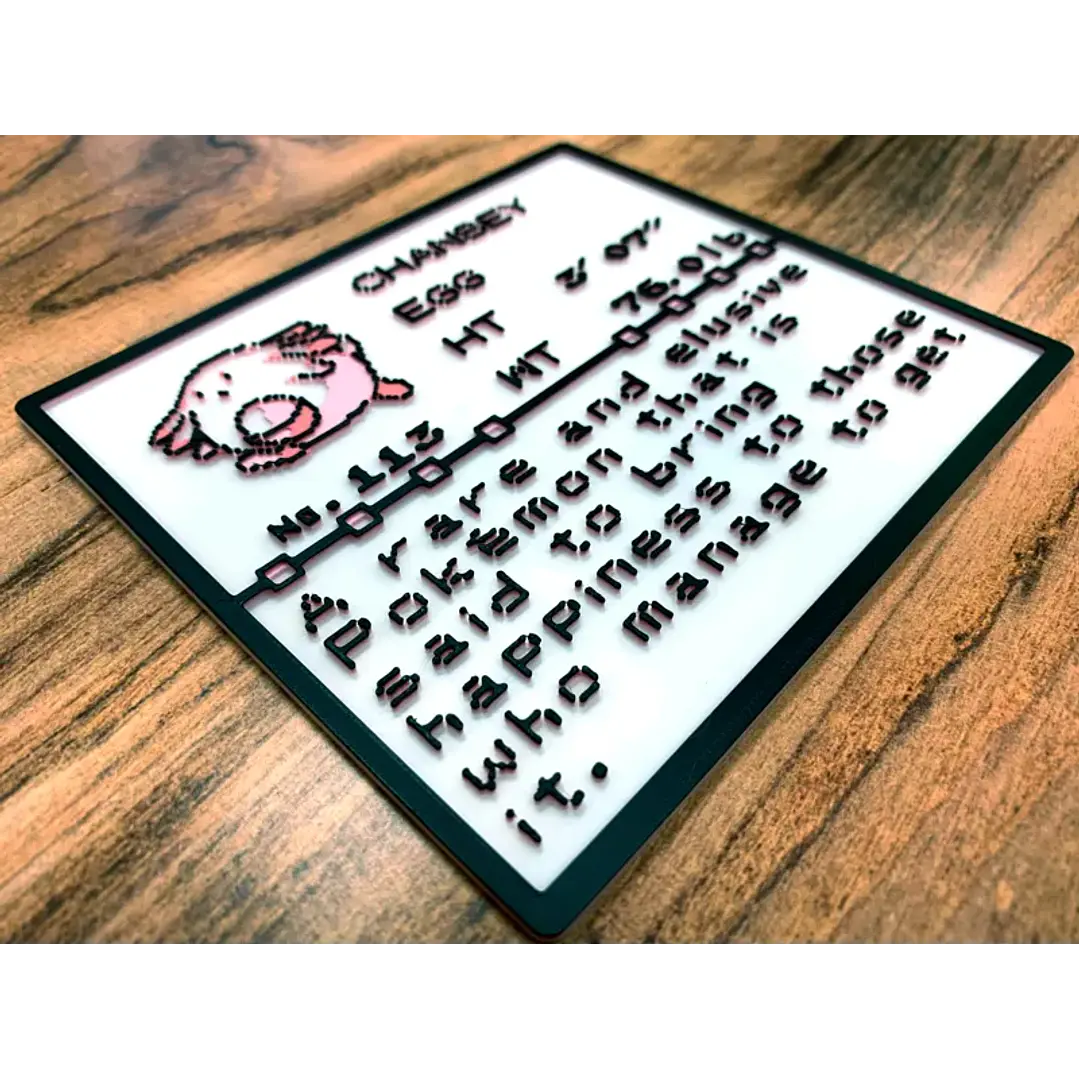 CHANSEY
EGG
HT 3' 07''
WT 76.0lb
No.113
A rare and elusive
Pokémon that is
said to bring
happiness to those
who manage to get
it.